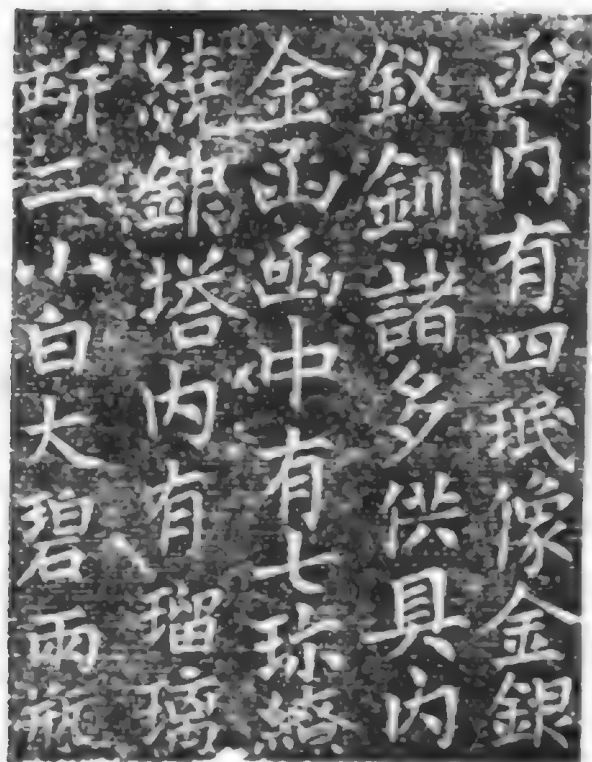 函内有四珉像金銀
釵釧諸多供具内
金函函中有七珎繒
繞銀塔内有瑠璃
瓶二小白大碧兩瓶